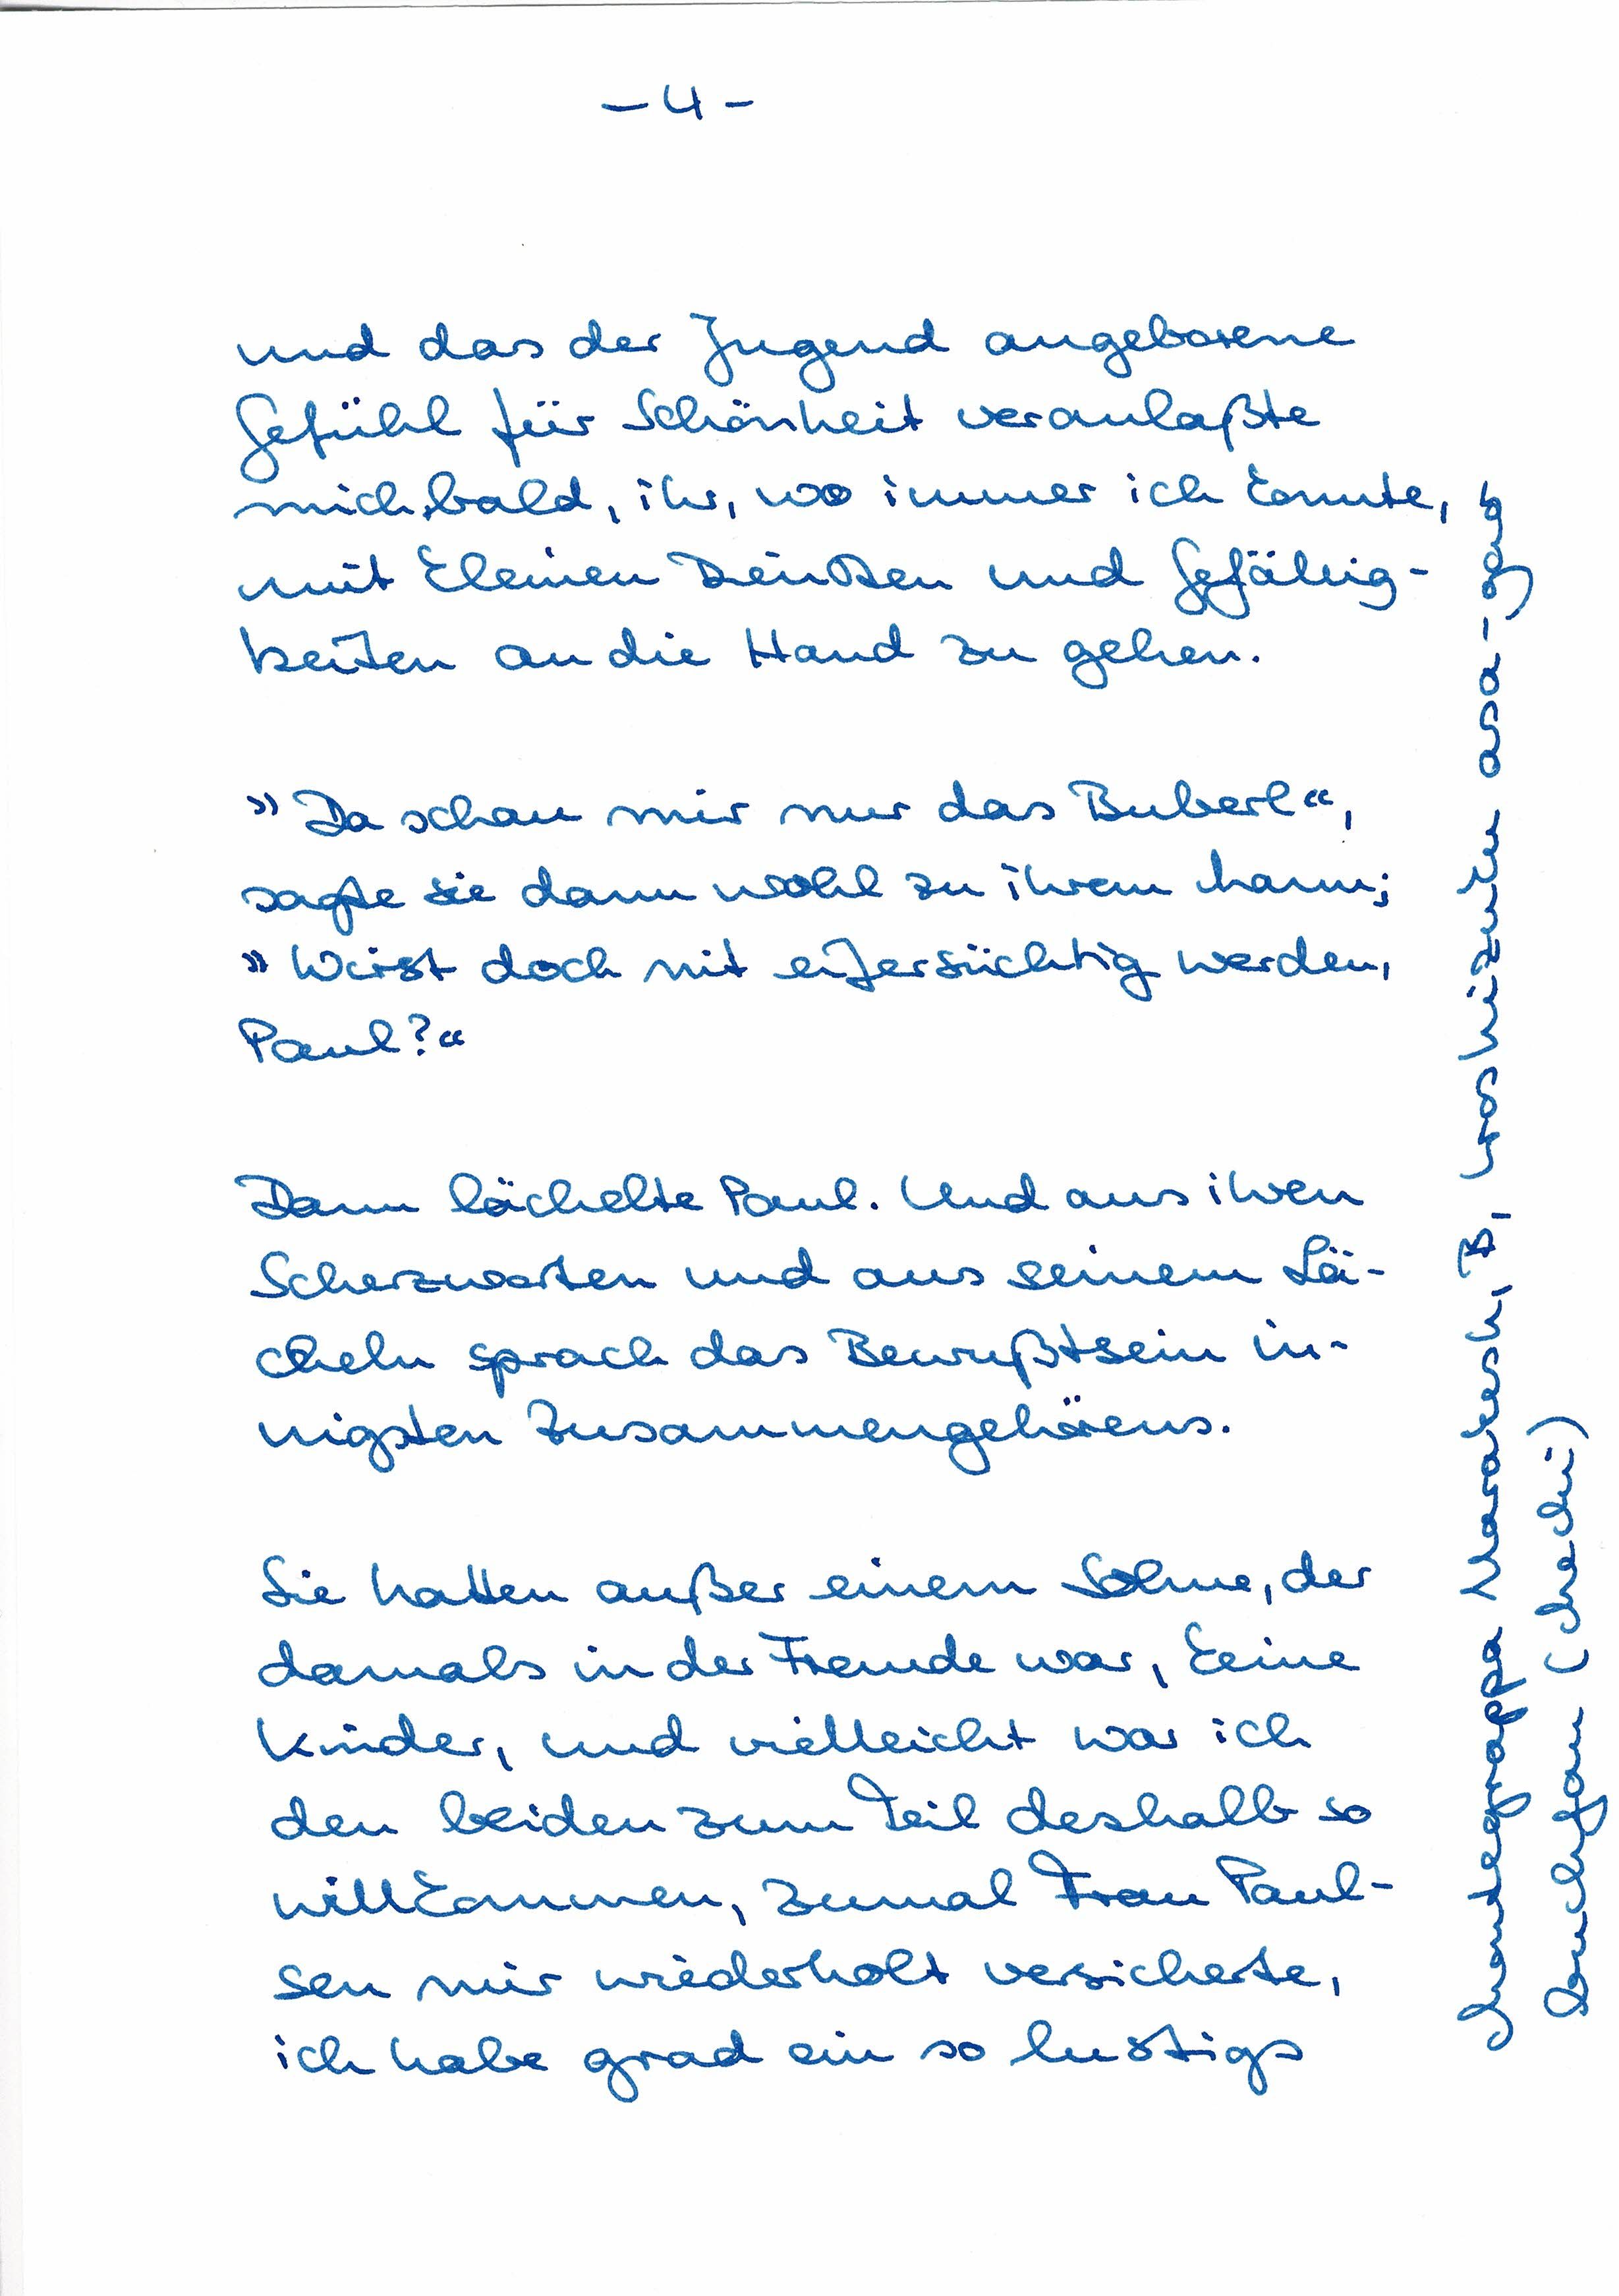 - 4 -
und das der Jugend angeborene
Gefühl für Schönheit veranlaßte
mich bald, ihr, wo immer ich konnte,
mit kleinen Deinsten und Gefällig-
keiten an die Hand zu gehen.
»Da schau mir nur das Buberl“,
sagte sie dann wohl zu ihrem Mann;
»Wirst doch nit eifersüchtig werden,
Paul?“
Dann lächelte Paul. Und aus ihren
Scherzworten und aus seinem Lä-
cheln sprach das Bewußtsein in-
nigsten Zusammengehörens.
Sie hatten außer einem Sohne, der
damals in der Fremde war, keine
Kinder, und vielleicht war ich
den beiden zum Teil deshalb so
willkommen, zumal Frau Paul-
sen mir wiederholt versicherte,
ich habe grad ein so lustigs
Montegrappa Marakesh, B, yoshizuku asa-gao